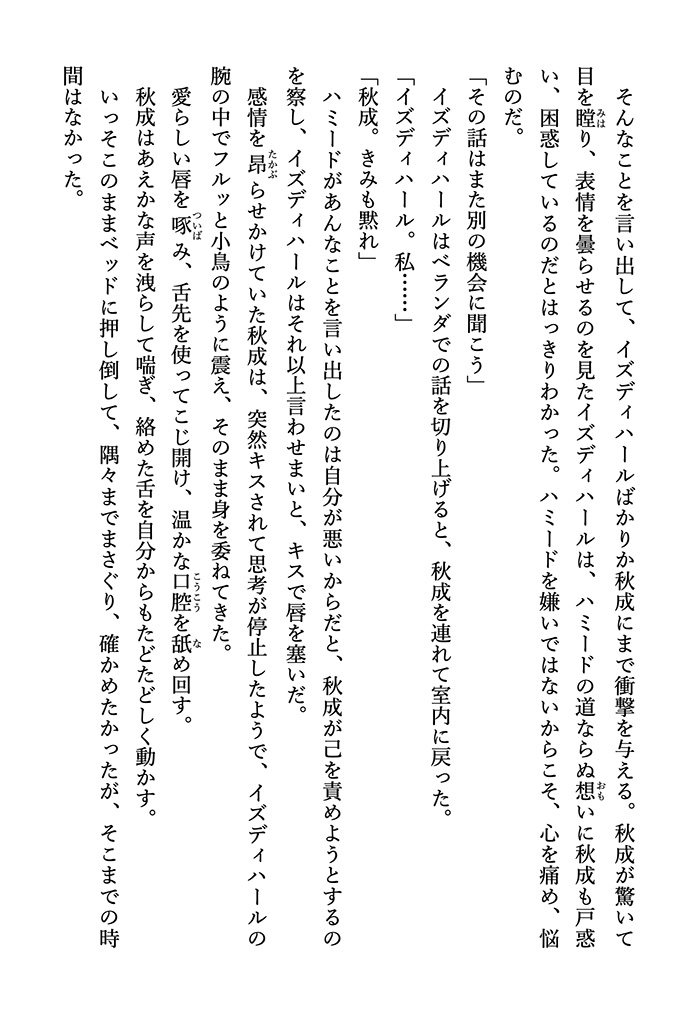 そんなことを言い出して、イズディハールばかりか秋成にまで衝撃を与える。秋成が驚いて
目を瞠り、表情を曇らせるのを見たイズディハールは、ハミードの道ならぬ想いに秋成も戸惑
い、困惑しているのだとはっきりわかった。ハミードを嫌いではないからこそ、心を痛め、悩
むのだ。
「その話はまた別の機会に聞こう」
イズディハールはベランダでの話を切り上げると、秋成を連れて室内に戻った。
「イズディハール。私……」
「秋成。きみも黙れ」
ハミードがあんなことを言い出したのは自分が悪いからだと、秋成が己を責めようとするの
を察し、イズディハールはそれ以上言わせまいと、キスで唇を塞いだ。
感情を昂らせかけていた秋成は、突然キスされて思考が停止したようで、イズディハールの
腕の中でフルッと小鳥のように震え、そのまま身を委ねてきた。
愛らしい唇を啄み、舌先を使ってこじ開け、温かな口腔を舐め回す。
秋成はあえかな声を洩らして喘ぎ、絡めた舌を自分からもたどたどしく動かす。
いっそこのままベッドに押し倒して、隅々までまさぐり、確かめたかったが、そこまでの時
間はなかった。